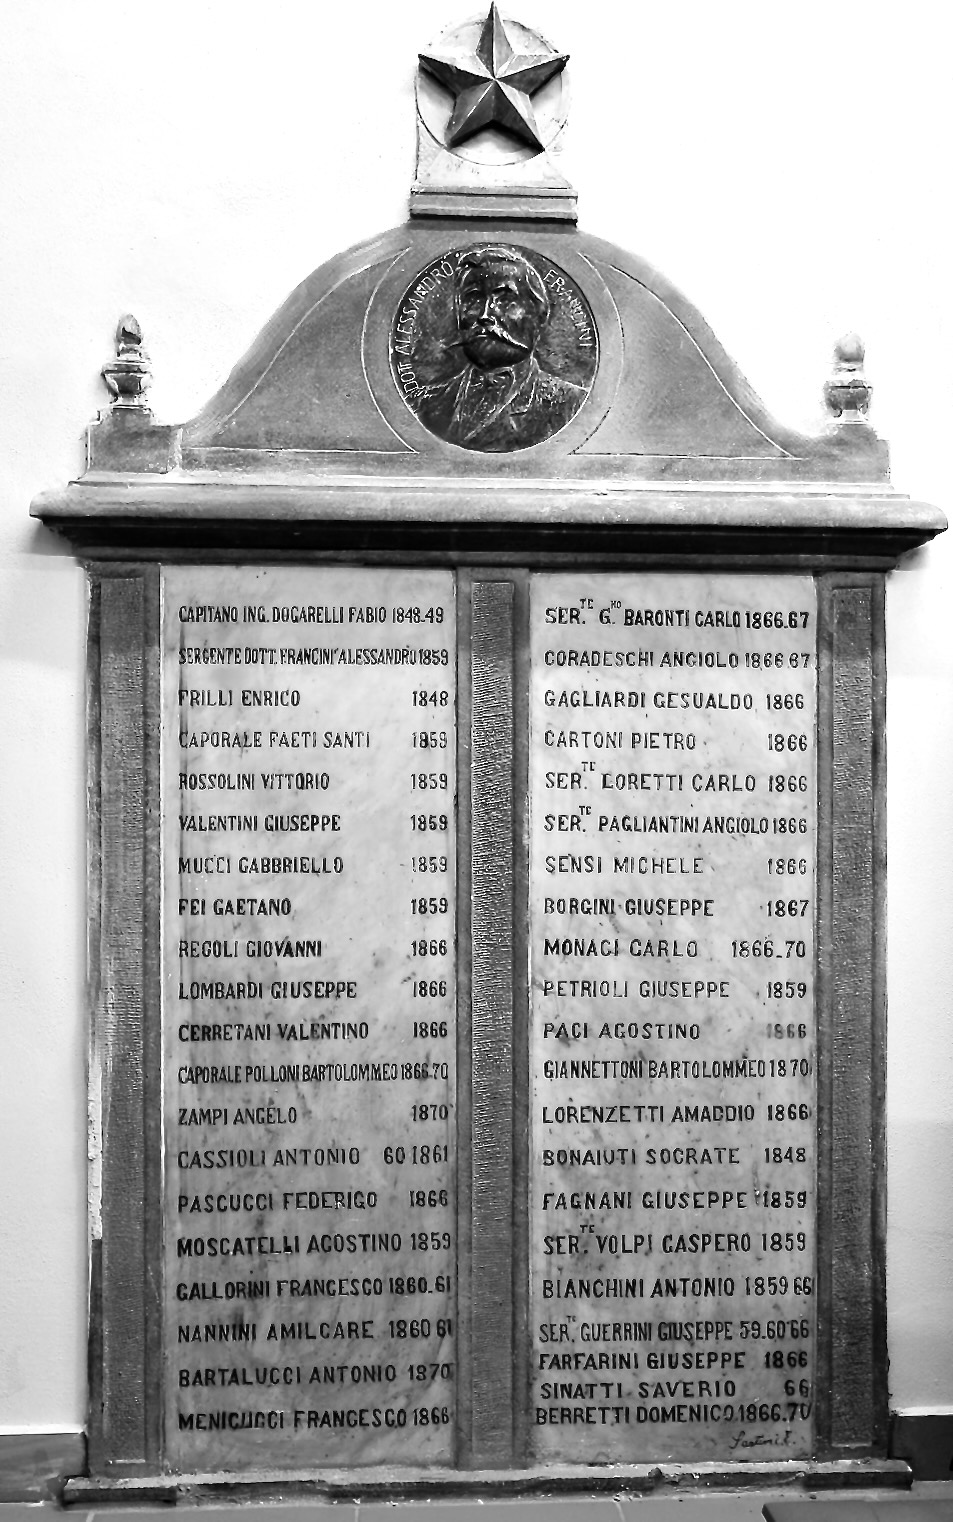 DOTT. ALESSANDRO FRANCINI
CAPITANO ING. DOGARELLI FABIO 1848-49
SERGENTE DOTT. FRANCINI ALESSANDRO 1859
FRILLI ENRICO 1848
CAPORALE FAETI SANTI 1859
ROSSOLINI VITTORIO 1859
VALENTINI GIUSEPPE 1859
MUCCI GABBRIELLO 1859
FEI GAETANO 1859
REGOLI GIOVANNI 1866
LOMBARDI GIUSEPPE 1866
CERRETANI VALENTINO 1866
CAPORALE POLLONI BARTOLOMMEO 1866.70
ZAMPI ANGELO 1870
CASSIOLI ANTONIO 60 1861
PASCUCCI FEDERIGO 1866
MOSCATELLI AGOSTINO 1859
GALLORINI FRANCESCO 1860-61
NANNINI AMILCARE 1860 61
BARTALUCCI ANTONIO 1870
MENICUCCI FRANCESCO 1866
SER.TE G.NO BARONTI CARLO 1866.67
CORADESCHI ANGIOLO 1866 67
GAGLIARDI GESUALDO 1866
CARTONI PIETRO 1866
SER.TE LORETTI CARLO 1866
SER.TE PAGLIANTINI ANGIOLO 1866
SENSI MICHELE 1866
BORGINI GIUSEPPE 1867
MONACI CARLO 1866-70
PETRIOLI GIUSEPPE 1859
PACI AGOSTINO 1866
GIANNETTONI BARTOLOMMEO 1870
LORENZETTI AMADDIO 1866
BONAIUTI SOCRATE 1848
FAGNANI GIUSEPPE 1859
SER.TE VOLPI GASPERO 1859
BIANCHINI ANTONIO 1859 66
SER.TE GUERRINI GIUSEPPE 59.60 66
FARFARINI GIUSEPPE 1866
SINATTI SAVERIO 66
BERRETTI DOMENICO 1866.70